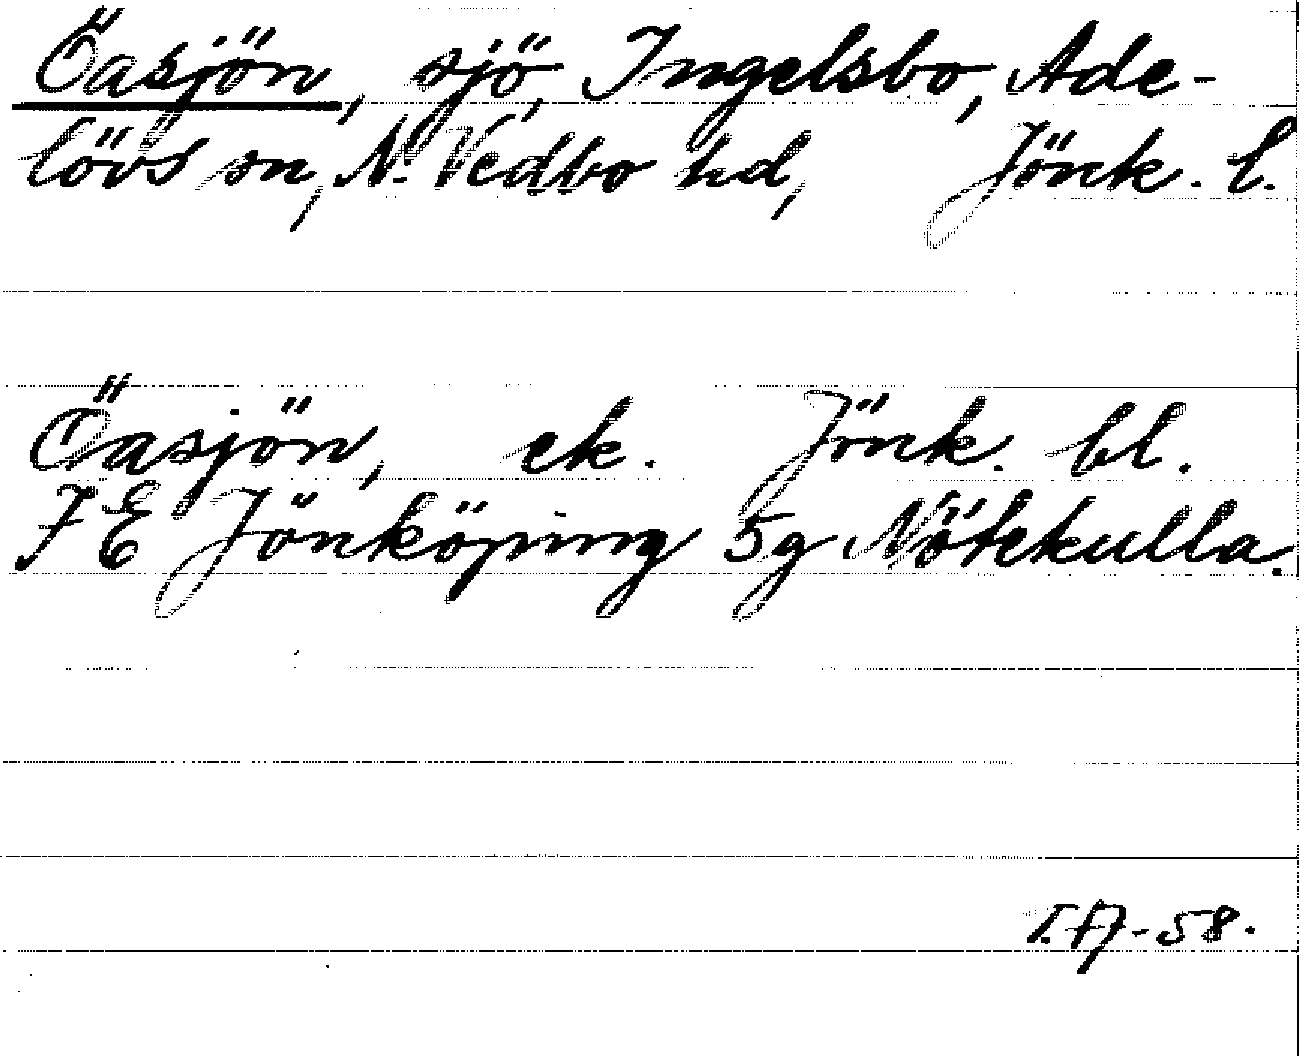 Öasjön, sjö, Ingelsbo, Ade-
lövs sn, N. Vedbo hd, Jönk. l.
Öasjön, ek. Jönk. bl.
7 E Jönköping 5g Nötekulla.
-58.